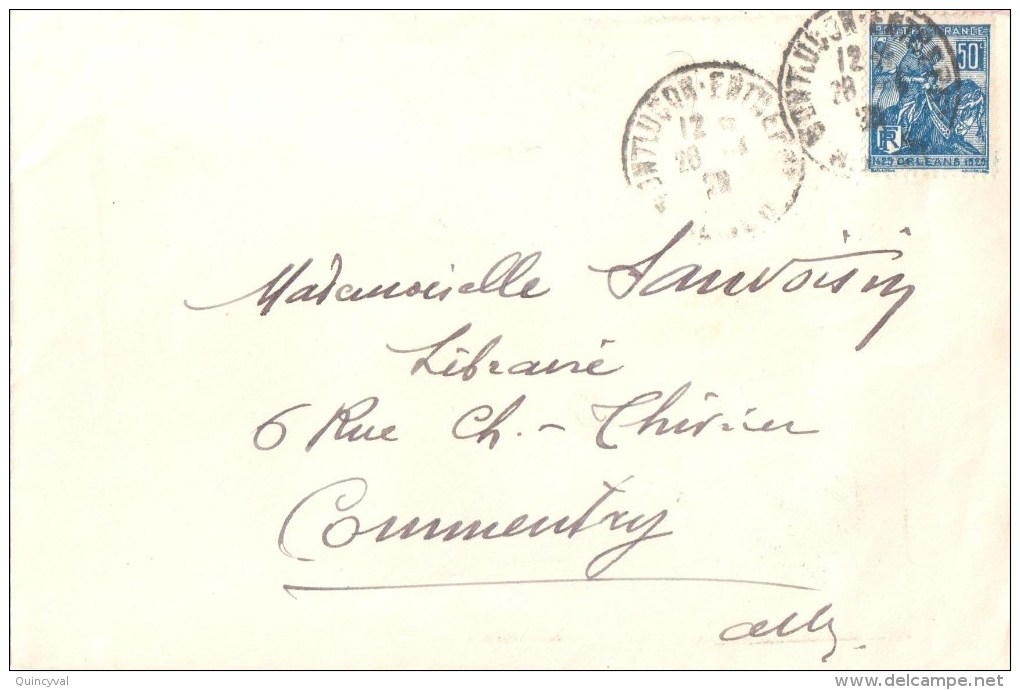 MONTLUCON-ENTREPOT
12
28
29
MONTLUCON-ENTREPOT
12
28
POSTES FRANCE
50c
RF
1429 ORLEANS 1929
Mademoiselle Sauvoisin
Libraire
6 Rue Ch.- Thivrier
Commentry
Quincyval
www.delcampe.net